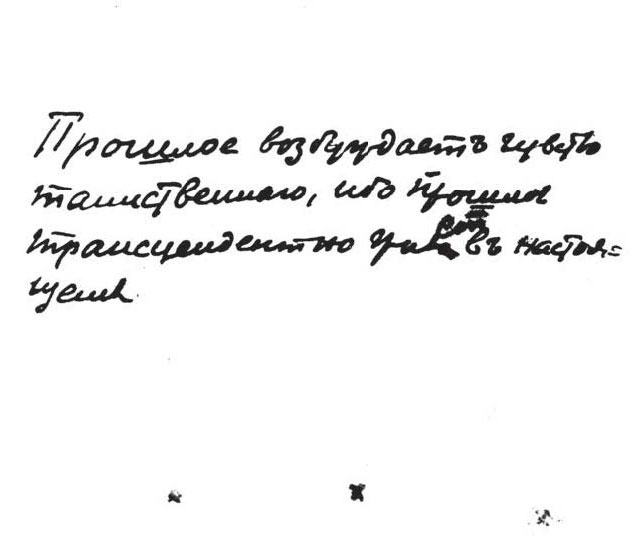 Прошлое возбуждаетъ чувство
таинственнаго, ибо прошлое
трансцендентно есть въ настоя=
щемъ.